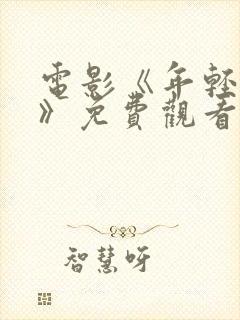 電影《年輕
》免費觀看
智慧呀